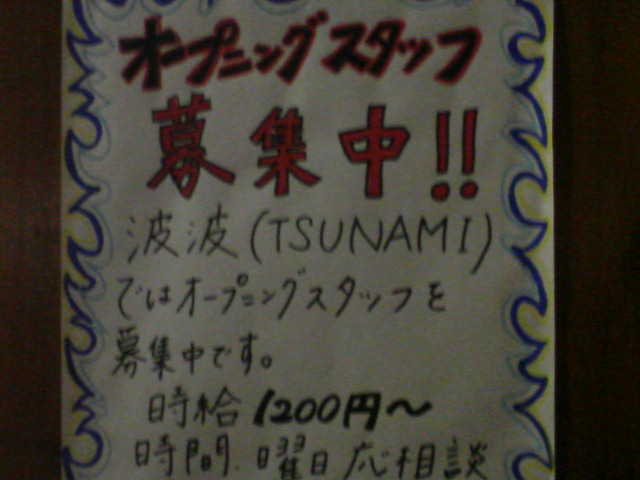 オープニングスタッフ
募集中!!
波波(TSUNAMI)
ではオープニングスタッフを
募集中です。
時給 1200円〜
時間、曜日 応相談